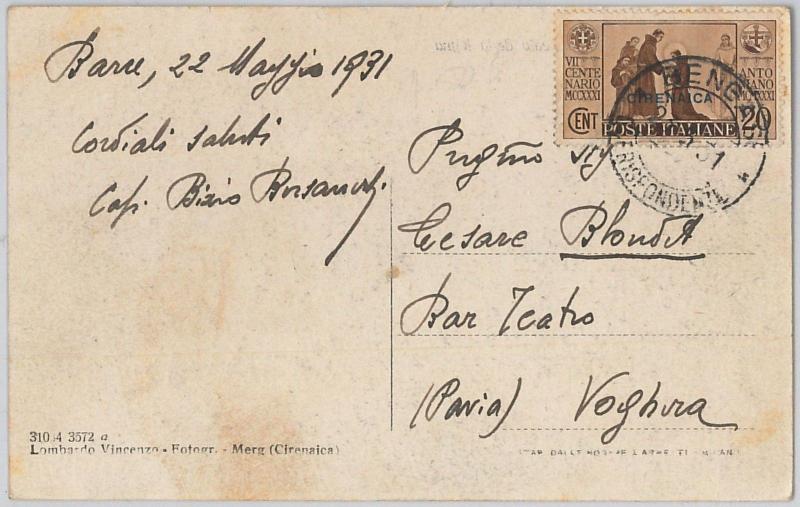 Barce, 22 Maggio 1931
Cordiali saluti
Cap. Bizio
VII CENTENARIO MCCXXXI
ANTONIANO MCMXXXI
CIRENAICA
CENT 20
POSTE ITALIANE
BENGASI
CORRISPONDENZE
Cesare Blondit
Bar Teatro
(Pavia) Voghera
310.4 3572 a
Lombardo Vincenzo - Fotogr. - Merg (Cirenaica)